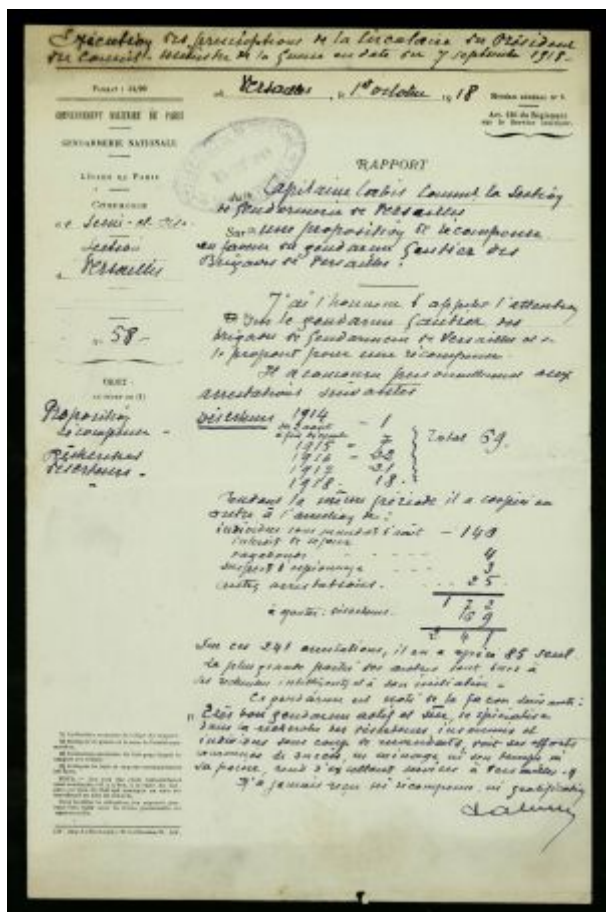 Exécution des prescriptions de la Circulaire du Président
du Conseil - Ministre de la Guerre en date du 7 septembre 1918 -
GOUVERNEMENT MILITAIRE DE PARIS
GENDARMERIE NATIONALE
LÉGION DE PARIS
COMPAGNIE
de Seine-et-Oise
Section
Versailles
N° 58 -
OBJET
Proposition
récompense -
Recherches
déserteurs -
Versailles, le 1er octobre 1918
Art. du Règlement
sur le Service intérieur.
RAPPORT
du Capitaine Commt la Section
de Gendarmerie de Versailles
Sur une proposition de récompense
en faveur du gendarme Gautier des
Brigades de Versailles.
J'ai l'honneur d'appeler l'attention
sur le gendarme Gautier des
brigades de gendarmerie de Versailles et de
le proposer pour une récompense.
Il a concouru personnellement aux
arrestations suivantes
Déserteurs 1914 - 1
1915 = 7
1916 = 22
1917 21
1918. 18.
Total 69.
Pendant la même période il a coopéré en
outre à l'arrestation de :
individus sous mandat d'arrêt - 140
interdit de séjour
vagabonds 4
suspect d'espionnage 3
autres arrestations. 25
172
à ajouter : déserteurs. 69
241
Sur ces 241 arrestations, il en a opéré 85 seul.
La plus grande partie des autres sont dues à
ses recherches intelligentes et à son initiative.
Ce gendarme est noté de la façon suivante :
" Très bon gendarme actif et sûr, se spécialise
dans la recherche des déserteurs, insoumis et
individus sous coup de mandats, voit ses efforts
couronnés de succès, ne ménage ni son temps ni
sa peine, rend d'excellents services à Versailles. "
N'a jamais reçu ni récompense, ni gratification